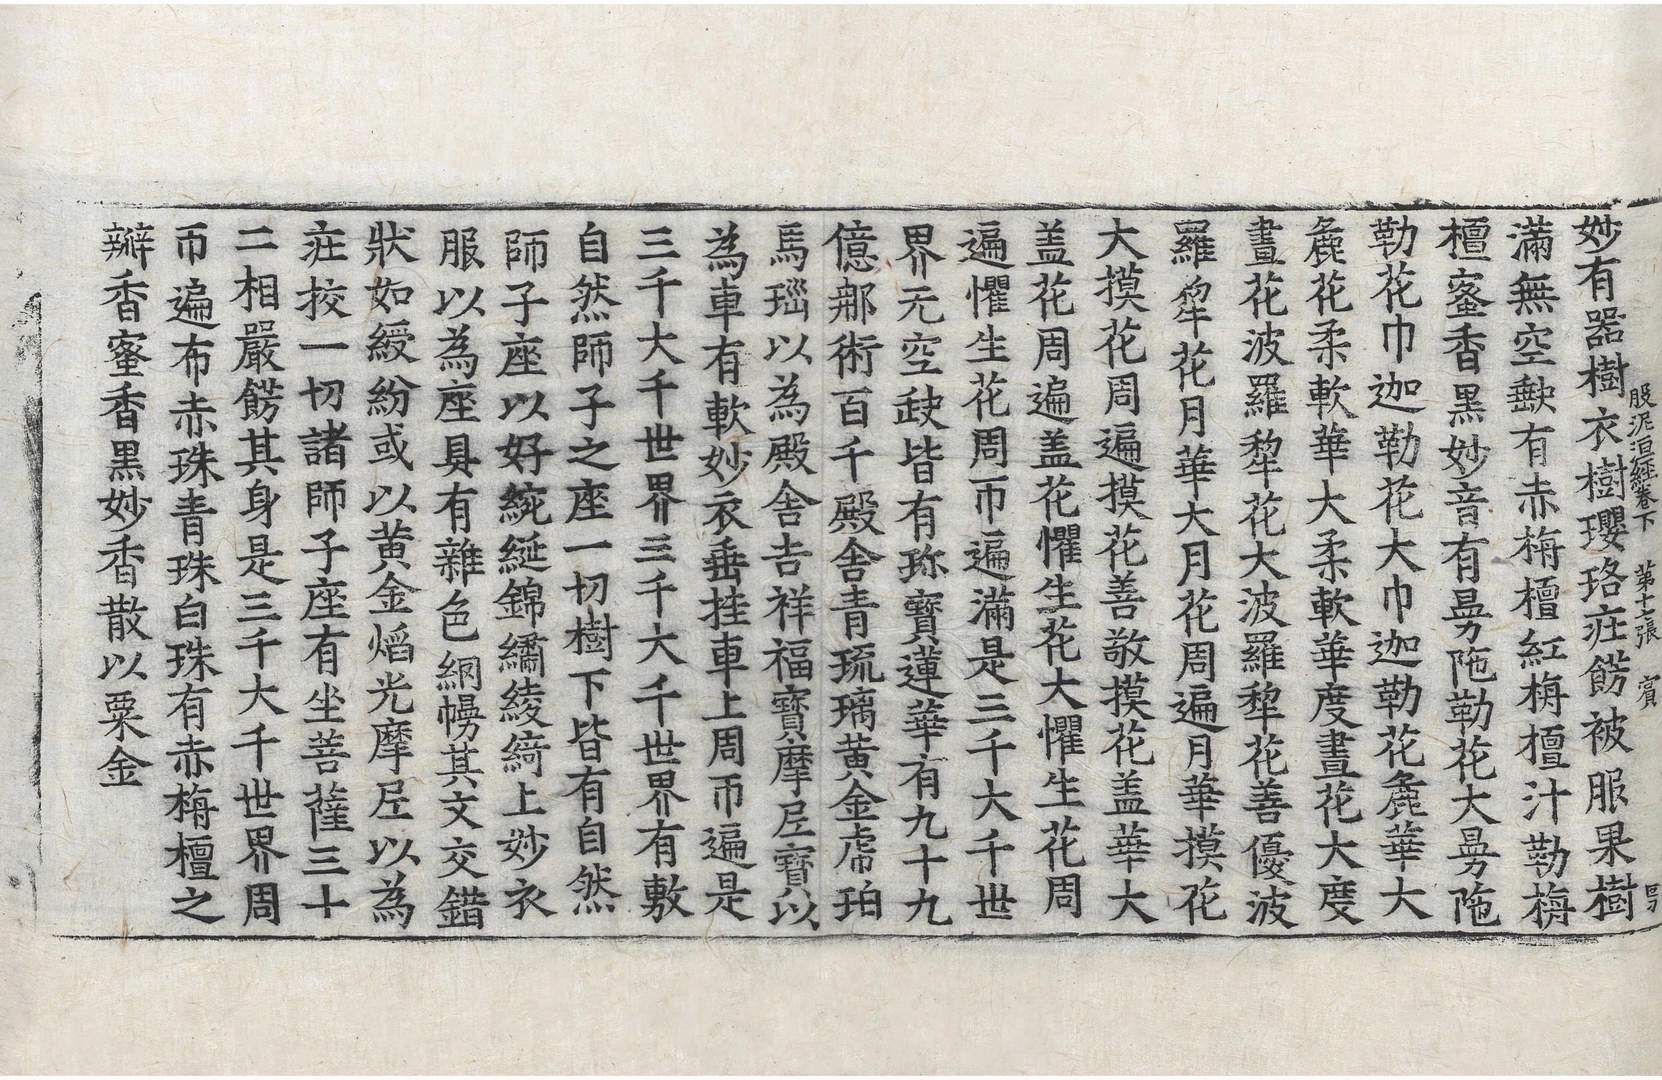 妙有器樹衣樹瓔珞㽵餝被服果樹
股泥洹經卷下　第十二張　賓
滿無空䡖有赤栴檀紅栴檀汁勒栴
檀蜜香黑妙音有㫑陁勒花大㫑陁
勒花巾迦勒花大巾迦勒花麁華大
麁花柔軟華大柔軟華度晝花大度
晝花波羅犂花大波羅犂花善優波
羅犂花月華大月花周遍月華摸花
大摸花周遍摸花善敬摸花盖華大
盖花周遍盖花懼生花大懼生花周
遍懼生花周帀遍滿是三千大千世
界无空缺皆有珎寶蓮華有九十九
億那術百千殿舍青琉璃黃金虎珀
馬瑙以為殿舍吉祥福寶摩尼寶以
為車有軟妙衣垂挂車上周帀遍是
三千大千世界三千大千世界有敷
自然師子之座一切樹下皆有自然
師子座以好綩綖錦繡綾綺上妙衣
服以為座具有雜色網幔其文交錯
狀如綬紛或以黃金熖光摩尼以為
㽵挍一切諸師子座有坐菩薩三十
二相嚴餝其身是三千大千世界周
帀遍布赤珠青珠白珠有赤栴檀之
瓣香蜜香黑妙香散以粟金